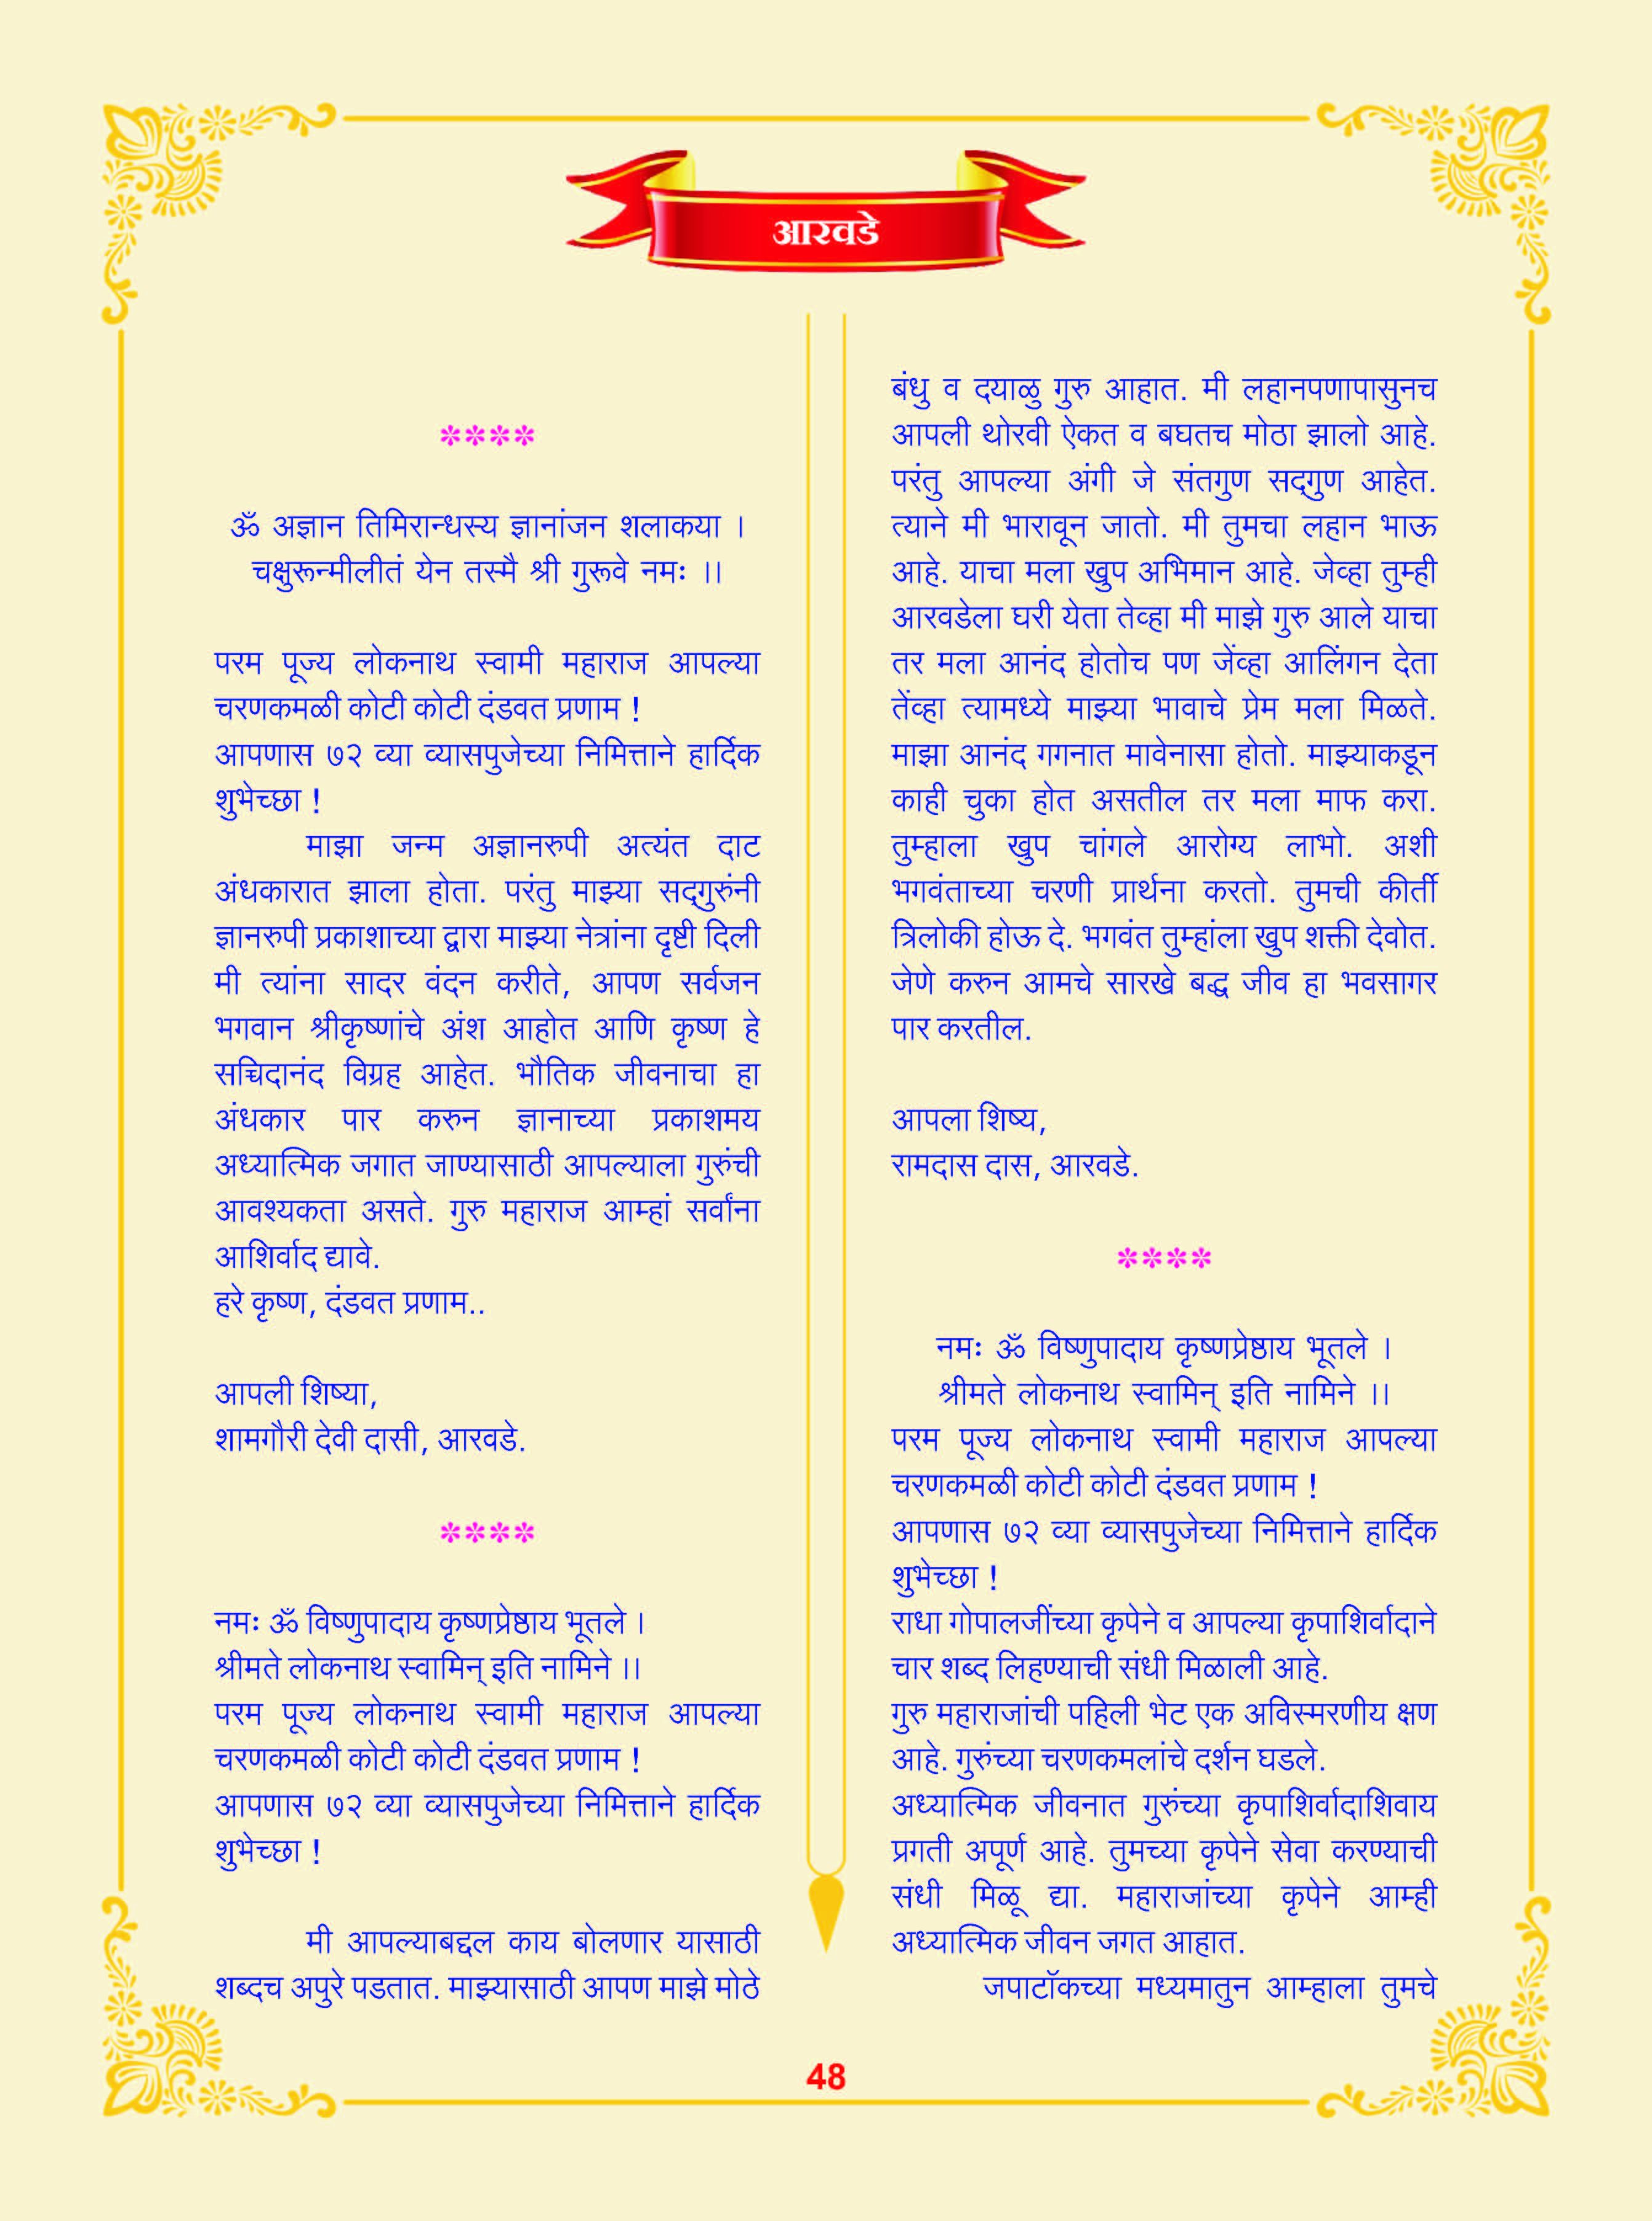 आरवडे
****
ॐ अज्ञान तिमिरान्धस्य ज्ञानांजन शलाकया ।
चक्षुरून्मीलीतं येन तस्मै श्री गुरूवे नमः ।।
परम पूज्य लोकनाथ स्वामी महाराज आपल्या
चरणकमळी कोटी कोटी दंडवत प्रणाम !
आपणास ७२ व्या व्यासपुजेच्या निमित्ताने हार्दिक
शुभेच्छा !
माझा जन्म अज्ञानरुपी अत्यंत दाट
अंधकारात झाला होता. परंतु माझ्या सद्‌गुरुंनी
ज्ञानरुपी प्रकाशाच्या द्वारा माझ्या नेत्रांना दृष्टी दिली
मी त्यांना सादर वंदन करीते, आपण सर्वजन
भगवान श्रीकृष्णांचे अंश आहोत आणि कृष्ण हे
सच्चिदानंद विग्रह आहेत. भौतिक जीवनाचा हा
अंधकार पार करुन ज्ञानाच्या प्रकाशमय
अध्यात्मिक जगात जाण्यासाठी आपल्याला गुरुंची
आवश्यकता असते. गुरु महाराज आम्हां सर्वांना
आशिर्वाद द्यावे.
हरे कृष्ण, दंडवत प्रणाम..
आपली शिष्या,
शामगौरी देवी दासी, आरवडे.
****
नमः ॐ विष्णुपादाय कृष्णप्रेष्ठाय भूतले ।
श्रीमते लोकनाथ स्वामिन् इति नामिने ।।
परम पूज्य लोकनाथ स्वामी महाराज आपल्या
चरणकमळी कोटी कोटी दंडवत प्रणाम !
आपणास ७२ व्या व्यासपुजेच्या निमित्ताने हार्दिक
शुभेच्छा !
मी आपल्याबद्दल काय बोलणार यासाठी
शब्दच अपुरे पडतात. माझ्यासाठी आपण माझे मोठे
बंधु व दयाळु गुरु आहात. मी लहानपणापासुनच
आपली थोरवी ऐकत व बघतच मोठा झालो आहे.
परंतु आपल्या अंगी जे संतगुण सद्‌गुण आहेत.
त्याने मी भारावून जातो. मी तुमचा लहान भाऊ
आहे. याचा मला खुप अभिमान आहे. जेव्हा तुम्ही
आरवडेला घरी येता तेव्हा मी माझे गुरु आले याचा
तर मला आनंद होतोच पण जेंव्हा आलिंगन देता
तेंव्हा त्यामध्ये माझ्या भावाचे प्रेम मला मिळते.
माझा आनंद गगनात मावेनासा होतो. माझ्याकडून
काही चुका होत असतील तर मला माफ करा.
तुम्हाला खुप चांगले आरोग्य लाभो. अशी
भगवंताच्या चरणी प्रार्थना करतो. तुमची कीर्ती
त्रिलोकी होऊ दे. भगवंत तुम्हांला खुप शक्ती देवोत.
जेणे करुन आमचे सारखे बद्ध जीव हा भवसागर
पार करतील.
आपला शिष्य,
रामदास दास, आरवडे.
****
नमः ॐ विष्णुपादाय कृष्णप्रेष्ठाय भूतले ।
श्रीमते लोकनाथ स्वामिन् इति नामिने ।।
परम पूज्य लोकनाथ स्वामी महाराज आपल्या
चरणकमळी कोटी कोटी दंडवत प्रणाम !
आपणास ७२ व्या व्यासपुजेच्या निमित्ताने हार्दिक
शुभेच्छा !
राधा गोपालजींच्या कृपेने व आपल्या कृपाशिर्वादाने
चार शब्द लिहण्याची संधी मिळाली आहे.
गुरु महाराजांची पहिली भेट एक अविस्मरणीय क्षण
आहे. गुरुंच्या चरणकमलांचे दर्शन घडले.
अध्यात्मिक जीवनात गुरुंच्या कृपाशिर्वादाशिवाय
प्रगती अपूर्ण आहे. तुमच्या कृपेने सेवा करण्याची
संधी मिळू द्या. महाराजांच्या कृपेने आम्ही
अध्यात्मिक जीवन जगत आहात.
जपाटॉकच्या मध्यमातुन आम्हाला तुमचे
48